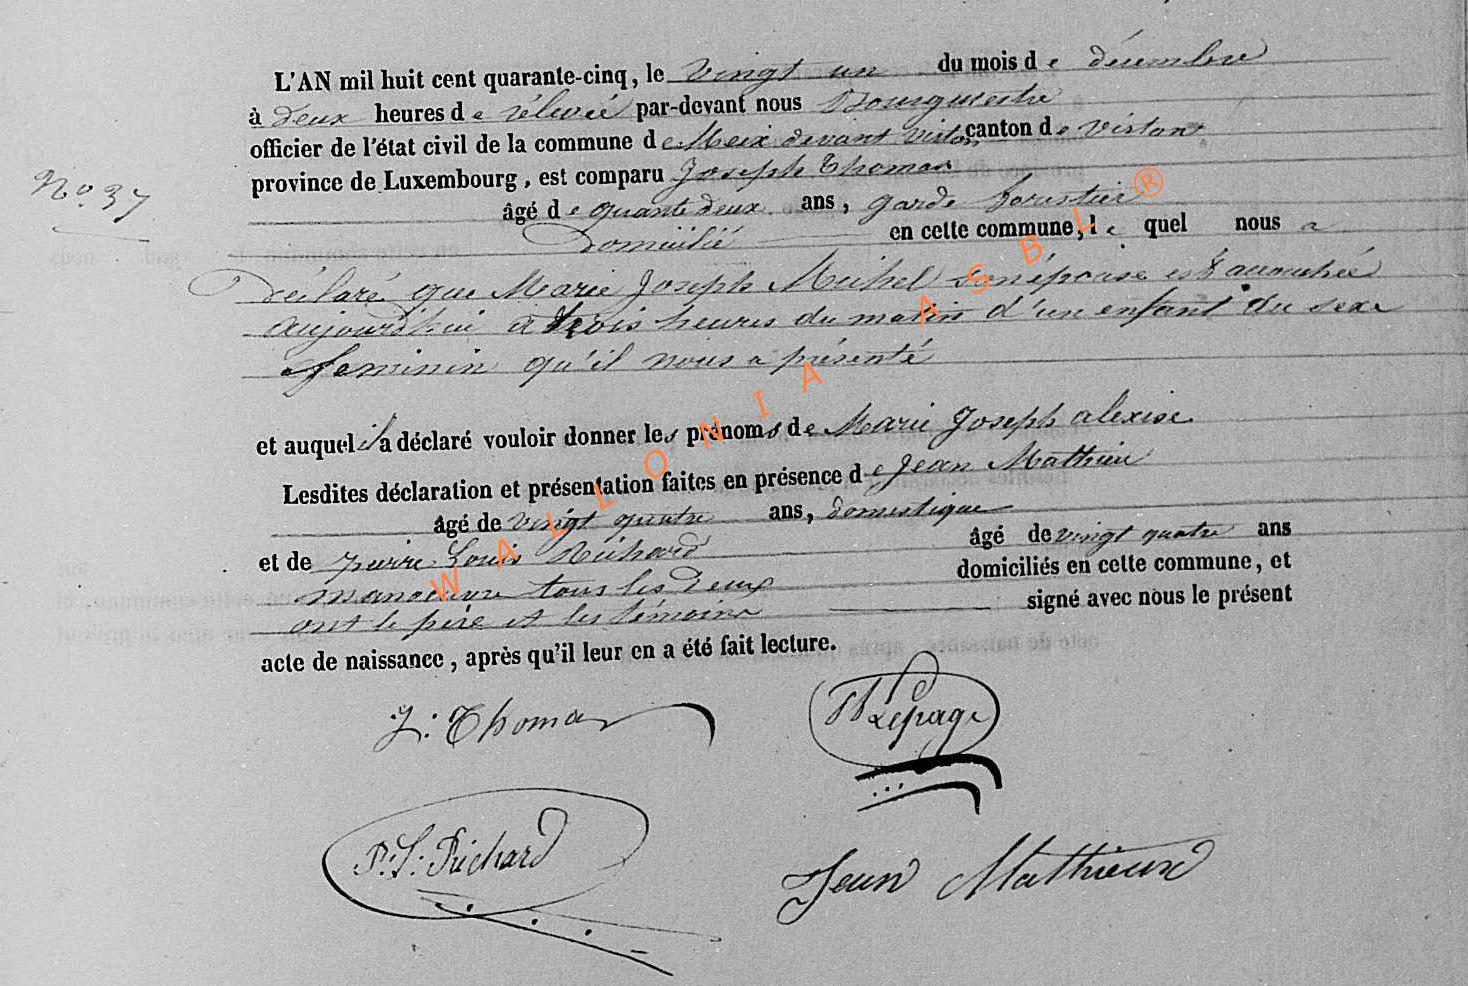 L'AN mil huit cent quarante-cinq, le vingt un du mois de décembre
à deux heures de rélevée par-devant nous Bourgmestre
officier de l'état civil de la commune de Meix devant Virton, canton de Virton
province de Luxembourg, est comparu Joseph Thomas
No 37
âgé de quante deux ans, garde forestier
Domicilié en cette commune, le quel nous a
Déclaré que Marie Joseph Michel son épouse est accouchée
aujourd'hui à trois heures du matin d'un enfant du sexe
feminin qu'il nous a présenté
et auquel il a déclaré vouloir donner les prénoms de Marie Joseph alexise
Lesdites déclaration et présentation faites en présence de Jean Mathieu
âgé de vingt quatre ans, domestique
et de pierre Louis Richard âgé de vingt quatre ans
manoeuvre tous les deux domiciliés en cette commune, et
ont le père et les témoins signé avec nous le présent
acte de naissance, après qu'il leur en a été fait lecture.
J: Thomas
Lepage
P. L: Richard
Jean Mathieux
WALLONIA ASBL ®